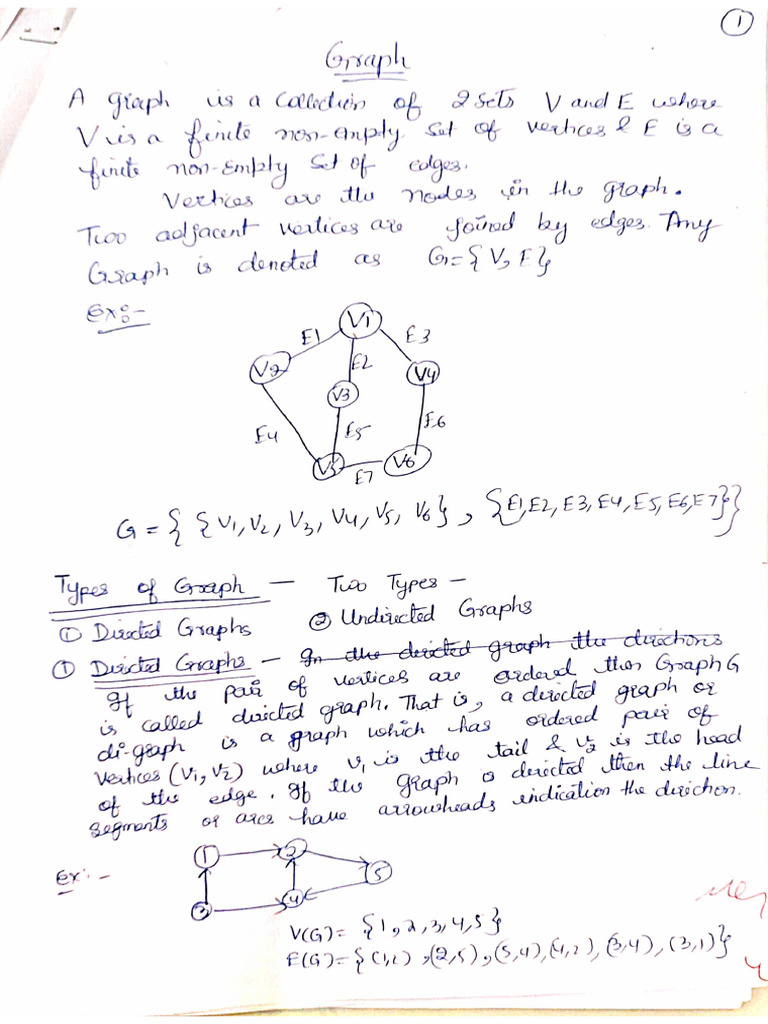 1
Graph
A graph is a collection of 2 sets V and E where
V is a finite non-empty set of vertices & E is a
finite non-empty set of edges.
Vertices are the nodes in the graph.
Two adjacent vertices are joined by edges. Any
Graph is denoted as G={V, E}
Ex:-
V1
E1 E3
V2 E2 V4
V3
E4 E5 E6
V5 E7 V6
G = { {V1, V2, V3, V4, V5, V6}, {E1, E2, E3, E4, E5, E6, E7}}
Types of Graph — Two Types —
① Directed Graphs ② Undirected Graphs
① Directed Graphs — In the directed graph the directions
If the pair of vertices are ordered then Graph G
is called directed graph. That is, a directed graph or
di-graph is a graph which has ordered pair of
vertices (V1, V2) where V1 is the tail & V2 is the head
of the edge. If the graph is directed then the line
segments or arcs have arrowheads indication the direction.
Ex:-
1 2
5
3 4
V(G) = {1, 2, 3, 4, 5}
E(G) = {(1,2), (2,5), (5,4), (4,2), (3,4), (3,1)}